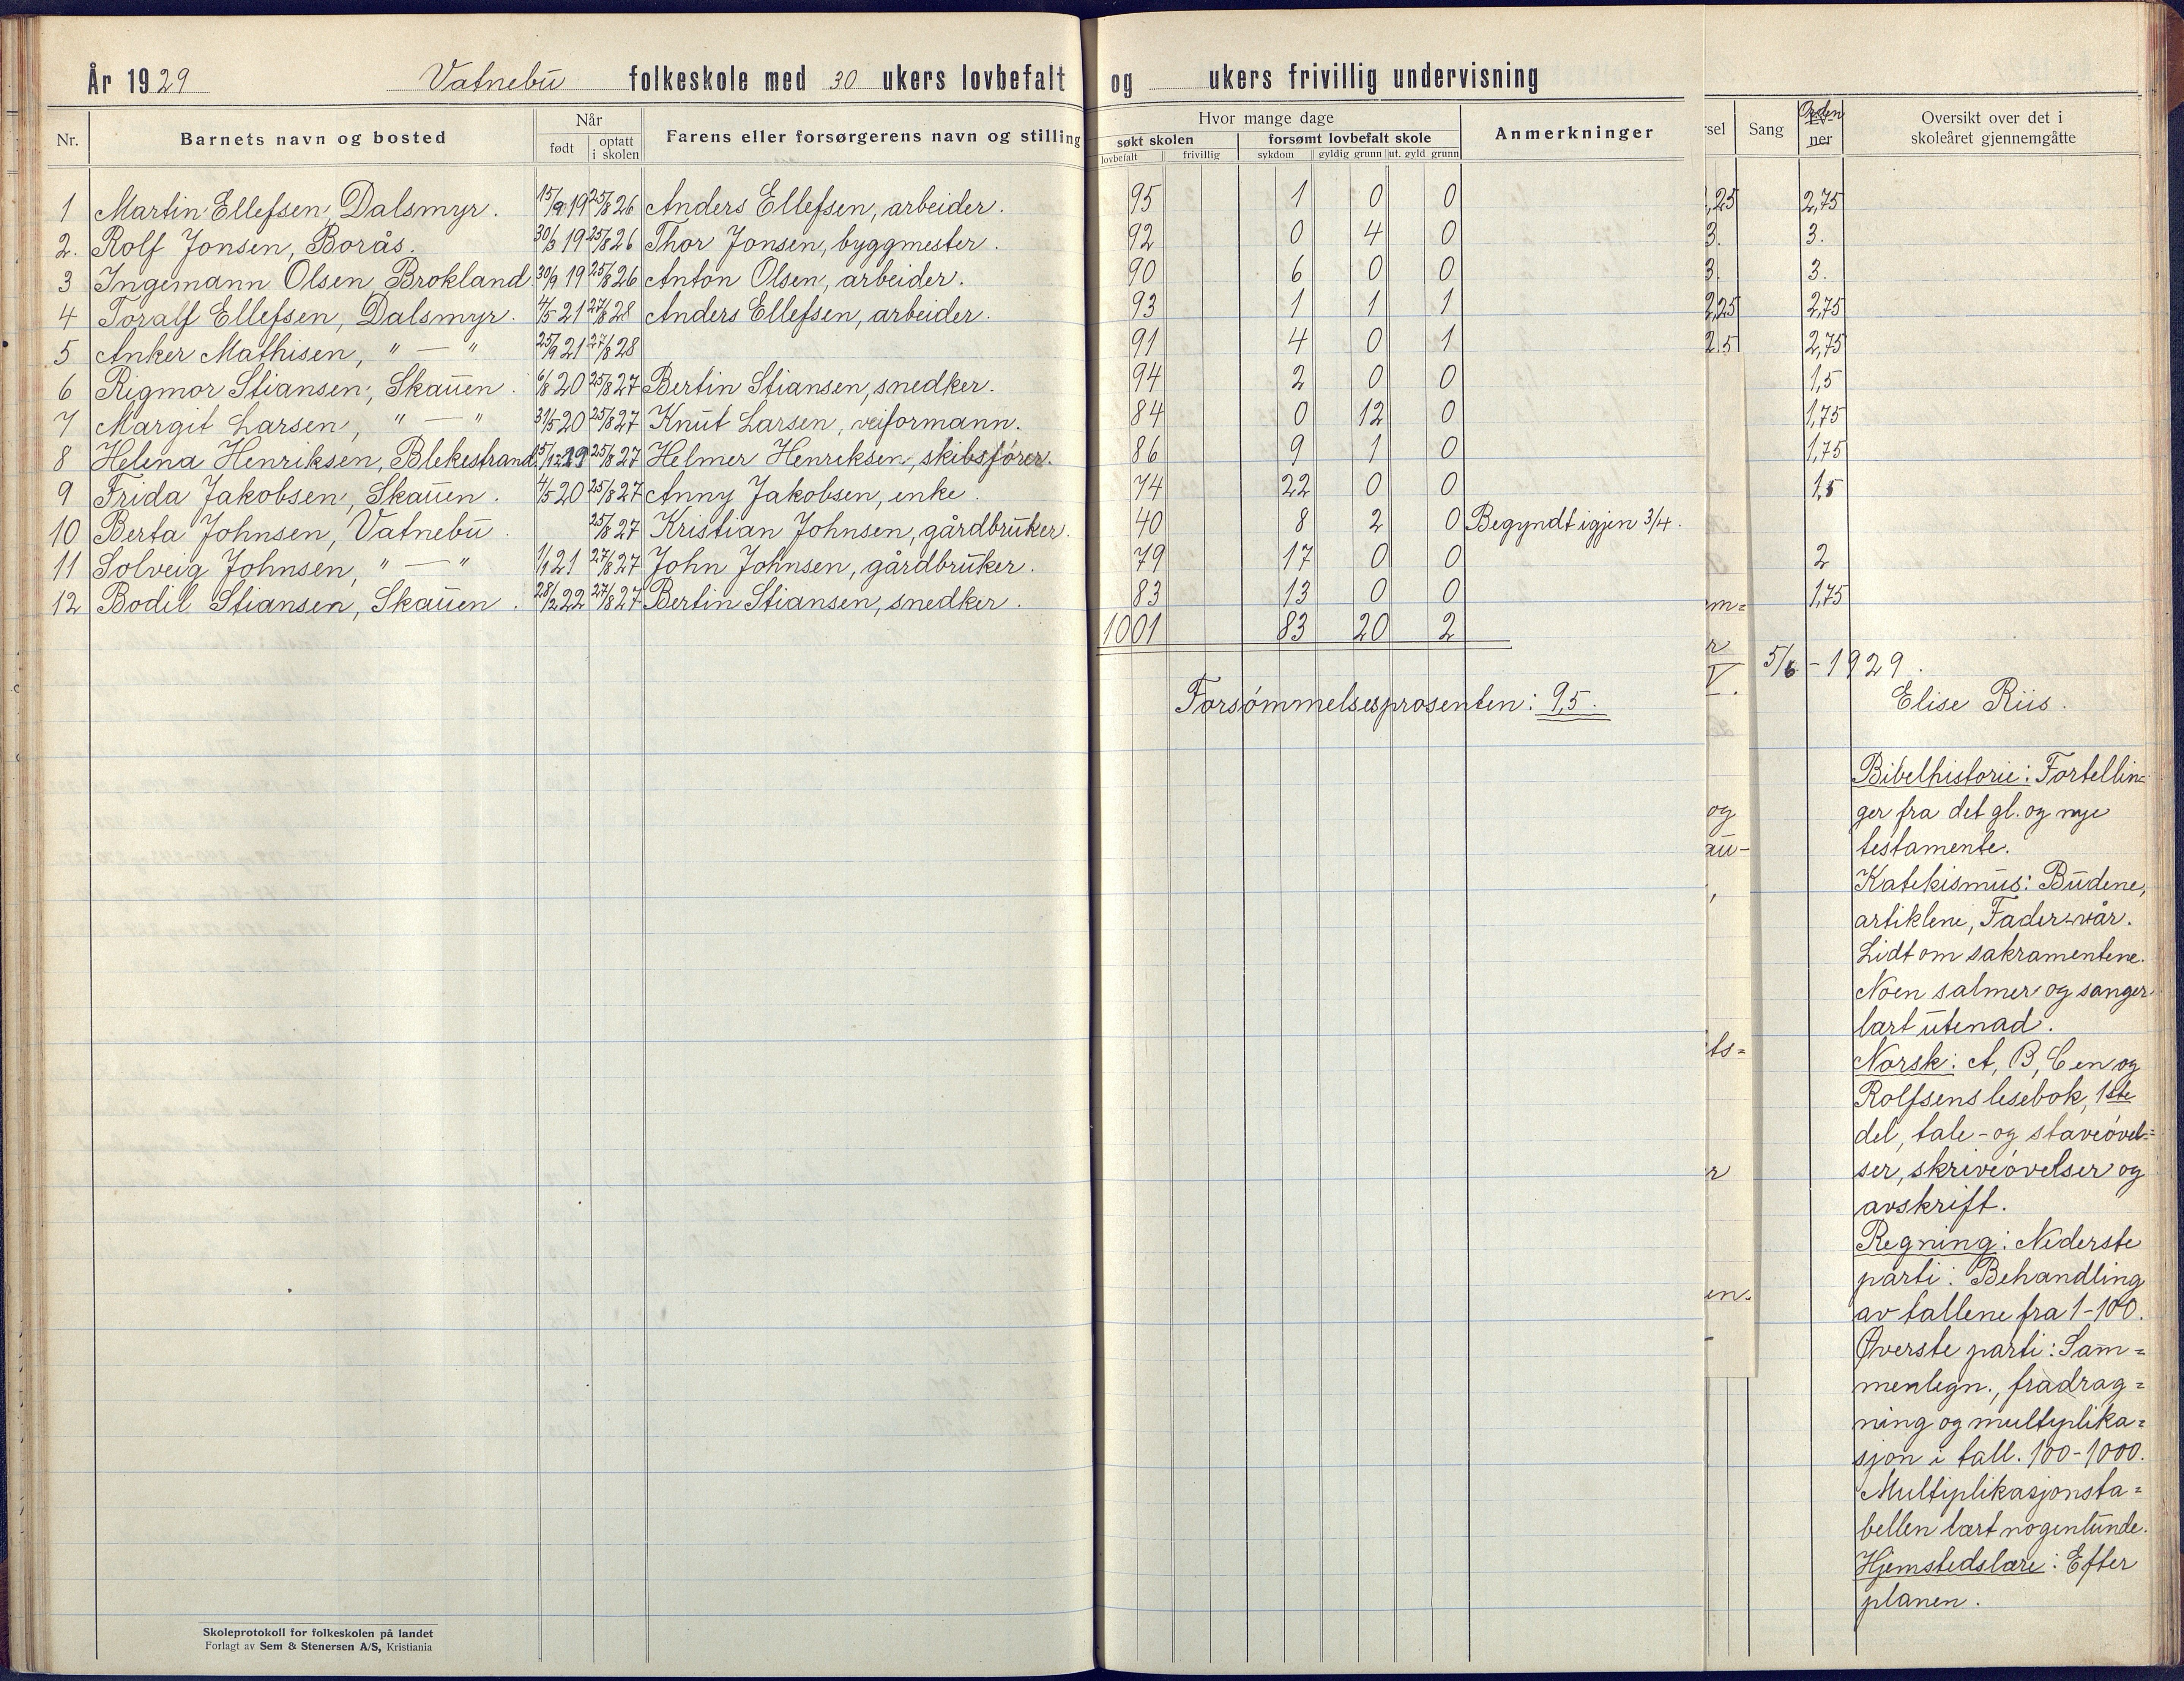 År 1929 Vatnebu folkeskole med 30 ukers lovbefalt og ukers frivillig undervisning
Nr. Barnets navn og bosted Når født optatt i skolen Farens eller forsørgerens navn og stilling Hvor mange dage søkt skolen lovbefalt frivillig forsømt lovbefalt skole sykdom gyldig grunn ut. gyld grunn Anmerkninger
1 Martin Ellefsen, Dalsmyr. 15/9 19 25/8 26 Anders Ellefsen, arbeider. 95 1 0 0
2. Rolf Jonsen, Borås. 19 25/8 26 Thor Jonsen, byggmester. 92 0 4 0
3 Ingemann Olsen, Brokland 30/9 19 25/8 26 Anton Olsen, arbeider. 90 6 0 0
4 Toralf Ellefsen, Dalsmyr. 4/5 21 27/8 28 Anders Ellefsen, arbeider. 93 1 1 1
5 Anker Mathisen, " — " 25/9 21 27/8 28 91 4 0 1
6 Rigmor Stiansen, Skauen. 6/8 20 25/8 27 Bertin Stiansen, snedker. 94 2 0 0
7 Margit Larsen, " — " 31/5 20 25/8 27 Knut Larsen, veiformann. 84 0 12 0
8 Helena Henriksen, Blekestrand. 15/12 25/8 27 Helmer Henriksen, skibsfører. 86 9 1 0
9 Frida Jakobsen, Skauen. 4/5 20 25/8 27 Anny Jakobsen, enke. 74 22 0 0
10 Berta Johnsen, Vatnebu. 25/8 27 Kristian Johnsen, gårdbruker. 40 8 2 0 Begyndt igjen 3/4.
11 Solveig Johnsen, " — " 1/1 21 27/8 27 John Johnsen, gårdbruker. 79 17 0 0
12 Bodil Stiansen, Skauen. 28/2 22 27/8 27 Bertin Stiansen, snedker. 83 13 0 0
1001 83 20 2
Forsømmelsesprosenten: 9,5.
Skoleprotokoll for folkeskolen på landet
Forlagt av Sem & Stenersen A/S, Kristiania
sel Sang Orden Ev-ner Oversikt over det i
skoleåret gjennemgåtte
,25 2,75
3. 3.
3. 3.
2,25 2,75
2,5 2,75
1,5
1,75
1,75
1,5
2
m= 1,75
r
V. 5/6 - 1929.
Elise Riis.
Bibelhistorie: Fortellin=
og ger fra det gl. og nye
au- testamente.
, Katekismus: Budene,
artiklene, Fader-vår.
Lidt om sakramentene.
Noen salmer og sanger
lært utenad.
ts= Norsk: A, B, C en og
Rolfsens lesebok, 1ste
del, tale- og staveøvel=
r ser, skriveøvelser og
avskrift.
Regning: Nederste
en. parti: Behandling
av tallene fra 1-100.
- Øverste parti: Sam=
menlegn., fradrag=
ning og multiplika=
sjon i tall. 100-1000.
Multiplikasjonsta=
bellen lært nogenlunde.
Hjemstedslære: Efter
planen.